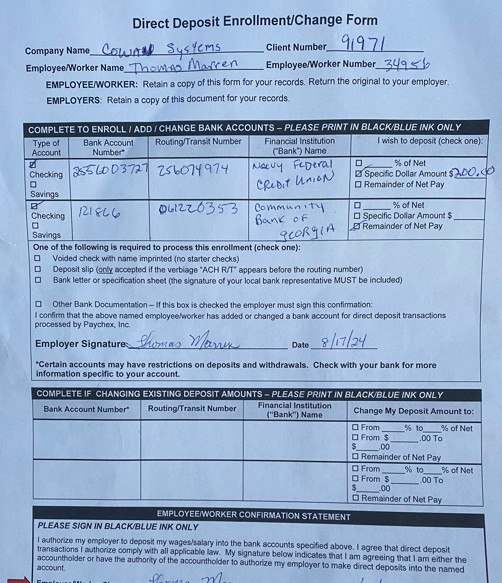 Direct Deposit Enrollment/Change Form
Company Name Cowan Systems Client Number 91971
Employee/Worker Name Thomas Marren Employee/Worker Number 34956
EMPLOYEE/WORKER: Retain a copy of this form for your records. Return the original to your employer.
EMPLOYERS: Retain a copy of this document for your records.
COMPLETE TO ENROLL / ADD / CHANGE BANK ACCOUNTS – PLEASE PRINT IN BLACK/BLUE INK ONLY
Type of Account Bank Account Number* Routing/Transit Number Financial Institution ("Bank") Name I wish to deposit (check one):
☑ Checking 2556003727 256074974 Navy Federal Credit Union ☐ % of Net
☐ Savings ☑ Specific Dollar Amount $200.00
☐ Remainder of Net Pay
☑ Checking 121866 061220353 Community Bank of Georgia ☐ % of Net
☐ Savings ☐ Specific Dollar Amount $
☑ Remainder of Net Pay
One of the following is required to process this enrollment (check one):
☐ Voided check with name imprinted (no starter checks)
☐ Deposit slip (only accepted if the verbiage "ACH R/T" appears before the routing number)
☐ Bank letter or specification sheet (the signature of your local bank representative MUST be included)
☐ Other Bank Documentation – If this box is checked the employer must sign this confirmation:
I confirm that the above named employee/worker has added or changed a bank account for direct deposit transactions
processed by Paychex, Inc.
Employer Signature Thomas Marren Date 8/17/24
*Certain accounts may have restrictions on deposits and withdrawals. Check with your bank for more
information specific to your account.
COMPLETE IF CHANGING EXISTING DEPOSIT AMOUNTS – PLEASE PRINT IN BLACK/BLUE INK ONLY
Bank Account Number* Routing/Transit Number Financial Institution ("Bank") Name Change My Deposit Amount to:
☐ From % to % of Net
☐ From $ .00 To
$ .00
☐ Remainder of Net Pay
☐ From % to % of Net
☐ From $ .00 To
$ .00
☐ Remainder of Net Pay
EMPLOYEE/WORKER CONFIRMATION STATEMENT
PLEASE SIGN IN BLACK/BLUE INK ONLY
I authorize my employer to deposit my wages/salary into the bank accounts specified above. I agree that direct deposit
transactions I authorize comply with all applicable law. My signature below indicates that I am agreeing that I am either the
accountholder or have the authority of the accountholder to authorize my employer to make direct deposits into the named
account.